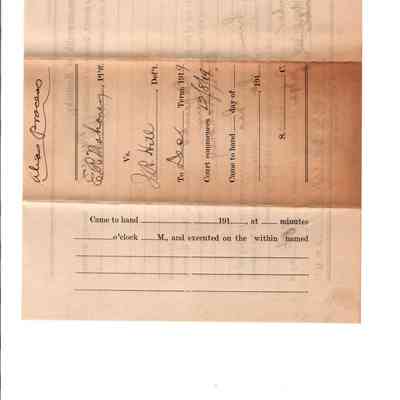 Alias Process
E R Mahoney, Pl'ff.
Vs.
J D Hill, Def't.
To Dec Term 1919
Court commences 12/8/19
Came to hand ____ day of
____, 191__
S. C.
Came to hand ____ 191__, at ____ minutes
____ o'clock ____ M., and executed on the within named